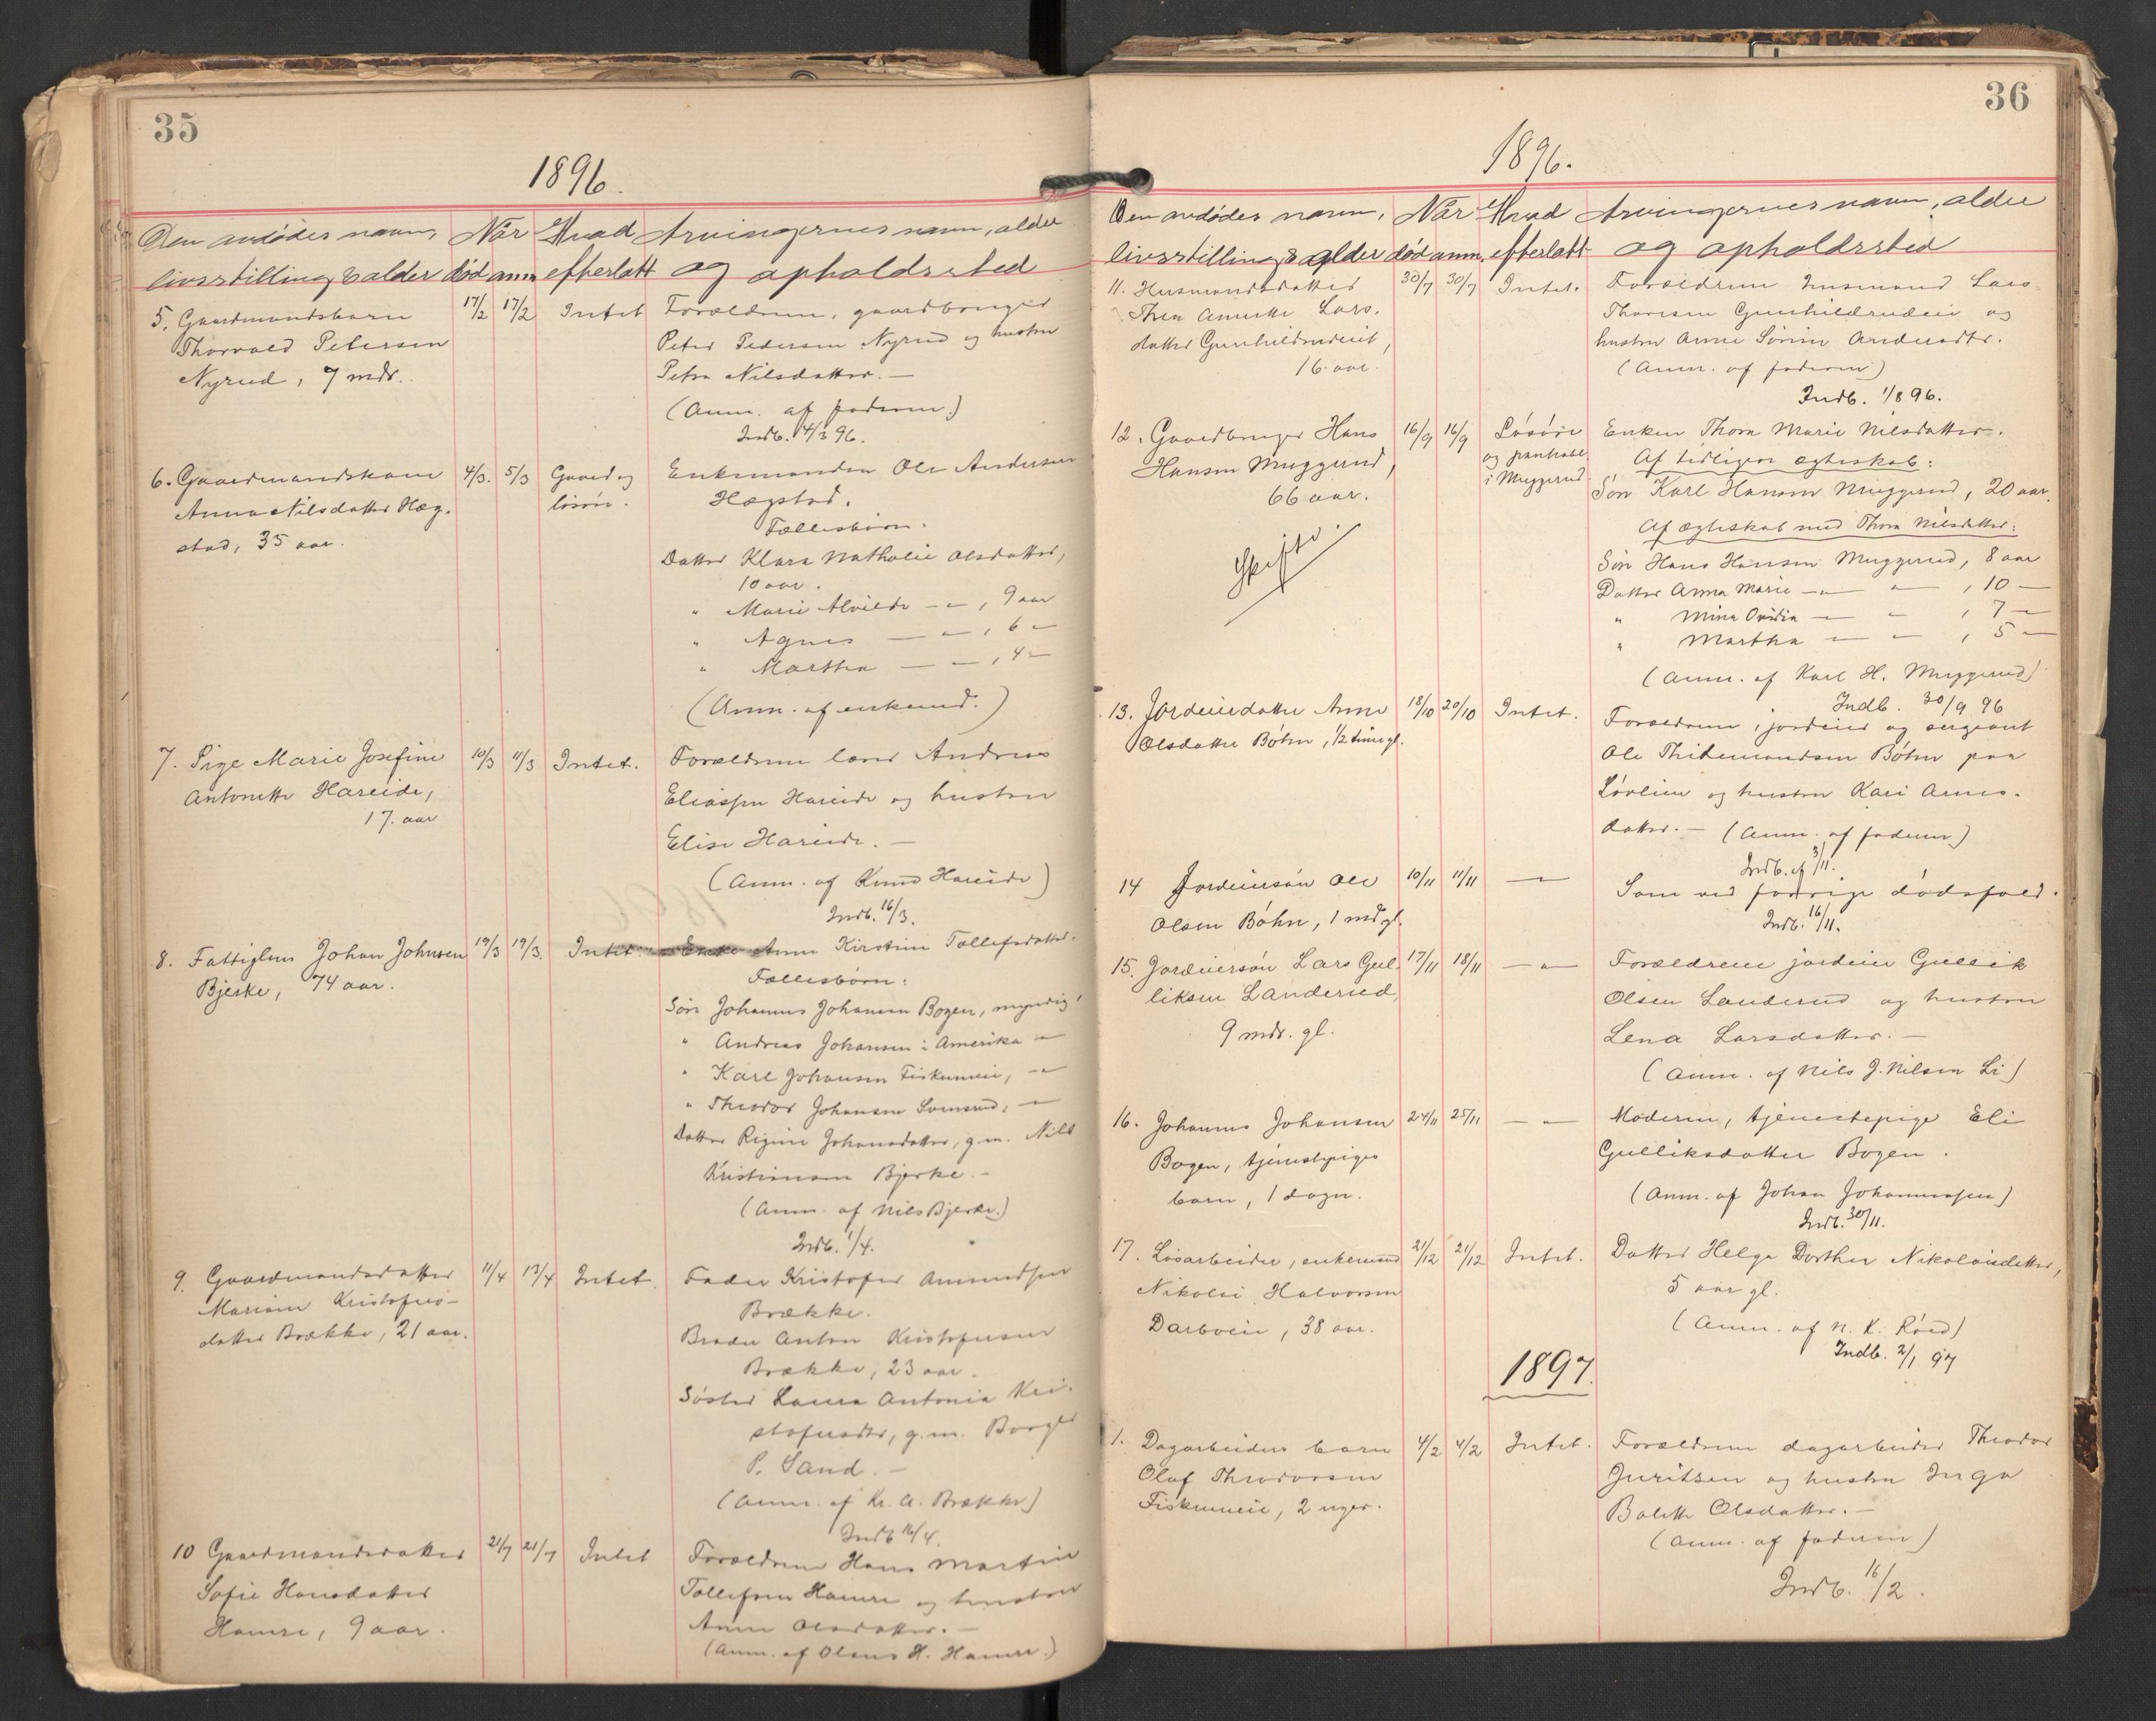 35
1896.
Den avdødes navn, Når Hvad Arvingernes navn, alder
livsstilling & alder død anm. efterlatt og opholdssted
5. Gaardmandsbarn 17/2 17/2 Intet Forældrene, gaardbruger
Thorvald Petersen Peter Pedersen Nyrud og hustru
Nyrud, 7 mdr. Petra Nilsdatter. —
(Anm. af faderen.)
Indb. 4/3 96.
6. Gaardmandskone 4/3. 5/3 Gaard og Enkemanden Ole Andersen
Anna Nilsdatter Hæg- løsøre. Hægstad.
stad, 35 aar. Fællesbørn:
Datter Klara Nathalie Olsdatter,
10 aar.
" Marie Alvilde — " — , 9 aar
" Agnes — " — , 6 —
" Martha — " — , 4 —
(Anm. af enkemd.)
7. Pige Marie Josefine 10/3 11/3 Intet. Forældrene lærer Andreas
Antonette Hareide, Eliassen Hareide og hustru
17. aar Elise Hareide. —
(Anm. af Knud Hareide)
Indb. 16/3.
8. Fattiglem Johan Johnsen 19/3 19/3. Intet. Enke Anne Kirstine Tollefsdatter.
Bjerke, 74 aar. Fællesbørn:
Søn Johannes Johansen Bogen, myndig
" Andreas Johansen i Amerika — "
" Karl Johansen Fiskumeie, — "
" Theodor Johansen Svensrud, — "
Datter Regine Johansdatter, g.m. Nils
Kristiansen Bjerke. —
(Anm. af Nils Bjerke.)
Indb. 1/4.
9. Gaardmandsdatter 11/4 13/4 Intet. Fader Kristofer Amundsen
Mariane Kristofers- Brække.
datter Brække, 21 aar. Broder Anton Kristofersen
Brække, 23 aar.
Søster Laura Antonia Kri-
stofersdtr, g.m. Borger
P. Sand. —
(Anm. af Kr. A. Brække)
Indb 16/4.
10 Gaardmandsdatter 21/7 21/7 Intet Forældrene Hans Martin
Sofie Hansdatter Tollefsen Hamre og hustru
Hamre, 9 aar. Anne Olsdatter. —
(Anm. af Olaus H. Hamre.)
36
1896.
Den avdødes navn, Når Hvad Arvingernes navn, alder
livsstilling & alder død anm. efterlatt og opholdssted
11. Husmandsdatter 30/7 30/7 Intet. Forældrene husmand Lars
Thea Annette Lars- Thoresen Gunhildrudeie og
datter Gunhildrudeiet, hustru Anne Sørine Andersdtr.
16 aar. (Anm. af faderen)
Indb. 1/8 96.
12. Gaardbruger Hans 16/9 16/9 Løsøre Enken Thora Marie Nilsdatter.
Hansen Muggerud, og panteobl. Af tidligere ægteskab:
66 aar. i Muggerud Søn Karl Hansen Muggerud, 20 aar.
Skifte Af ægteskab med Thora Nilsdatter:
Søn Hans Hansen Muggerud, 8 aar
Datter Anna Marie — " — " , 10 —
" Mina Ovidia — " , 7 —
" Martha — " — , 5 —
(Anm. af Karl H. Muggerud)
Indb. 30/9 96
13. Jordeierdatter Anne 18/10 20/10 Intet. Forældrene, jordeier og sergeant
Olsdatter Bøhn, 1/2 time gl. Ole Thidemandsen Bøhn paa
Løvlien og hustru Kari Arnes-
datter. — (Anm. af faderen)
Indb. af 3/11.
14 Jordeiersøn Ole 10/11 11/11 — " — Som ved forrige dødsfald.
Olsen Bøhn, 1 md gl. Indb. 16/11.
15. Jordeiersøn Lars Gul- 17/11 18/11 — " — Forældrene jordeier Gullik
liksen Landerud, Olsen Landerud og hustru
9 mdr. gl. Lena Larsdatter. —
(Anm. af Nils J. Nilsen Li)
16. Johannes Johansen 24/11 25/11 — " — Moderen, tjenestepige Eli
Bogen, tjenestepiges Gulliksdatter Bogen.
barn, 1 døgn. (Anm. af Johan Johannessen)
Indb. 30/11.
17. Løsarbeider, enkemand 21/12 21/12 Intet. Datter Helga Dorthea Nikolaidatter,
Nikolai Halvorsen 5 aar gl.
Darboeie, 38 aar. (Anm. af N. K. Røed)
Indb. 2/1 97
1897.
1. Dagarbeiders barn 4/2 4/2 Intet. Forældrene dagarbeider Theodor
Olaf Theodorsen Juritsen og hustru Inga
Fiskumeie, 2 uger. Bolette Olsdatter. —
(Anm. af faderen)
Indb. 16/2.